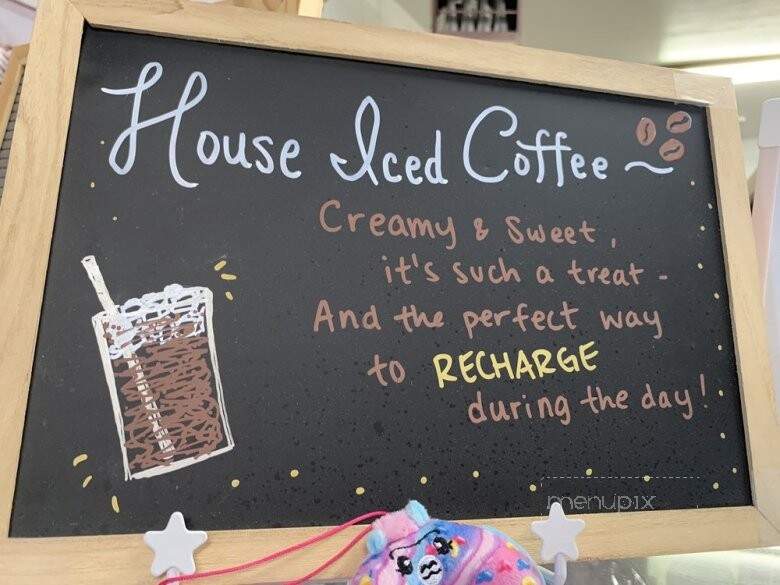 House Iced Coffee ~
Creamy & Sweet,
it's such a treat -
And the perfect way
to RECHARGE
during the day!
menupix